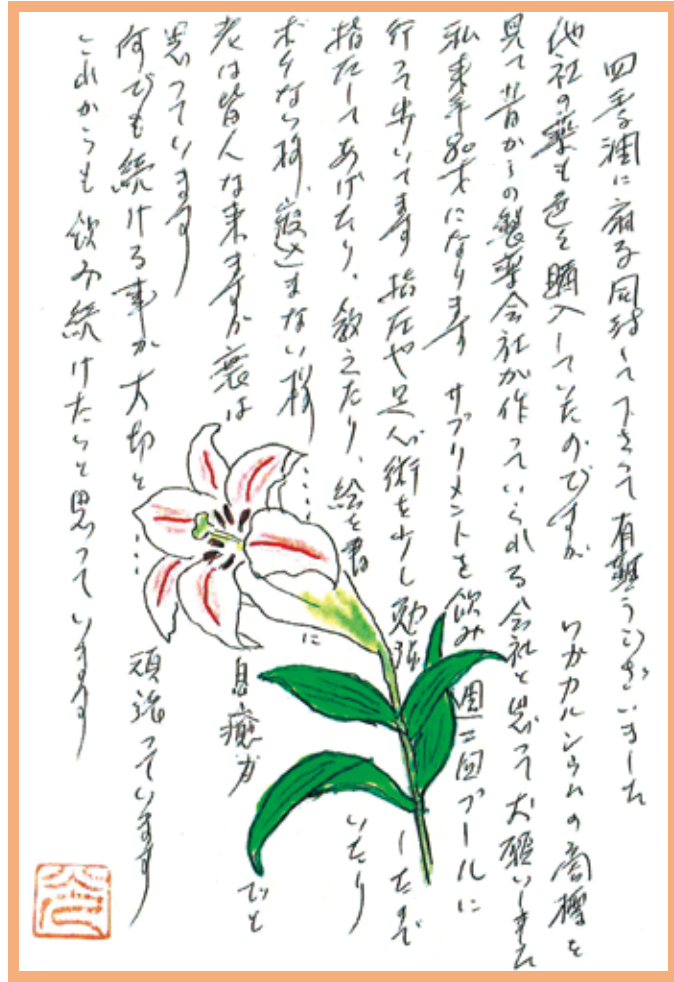 四季潤に扇子同封して下さって有難うございました
他社の薬も色々購入していたのですが ワダカルシウムの商標を
見て昔からの製薬会社が作っていられる会社と思ってお願いしました
私来年80才になります サプリメントを飲み週二回プールに
行って歩いてます 指圧や足心術を少し勉強したので
指圧してあげたり、教えたり、絵を書いたり
ボケない様、寝込まない様……に
老は皆んな来ますが衰は 自癒力でと
思っています
何でも続ける事が大切と…… 頑張っています
これからも飲み続けたいと思っています